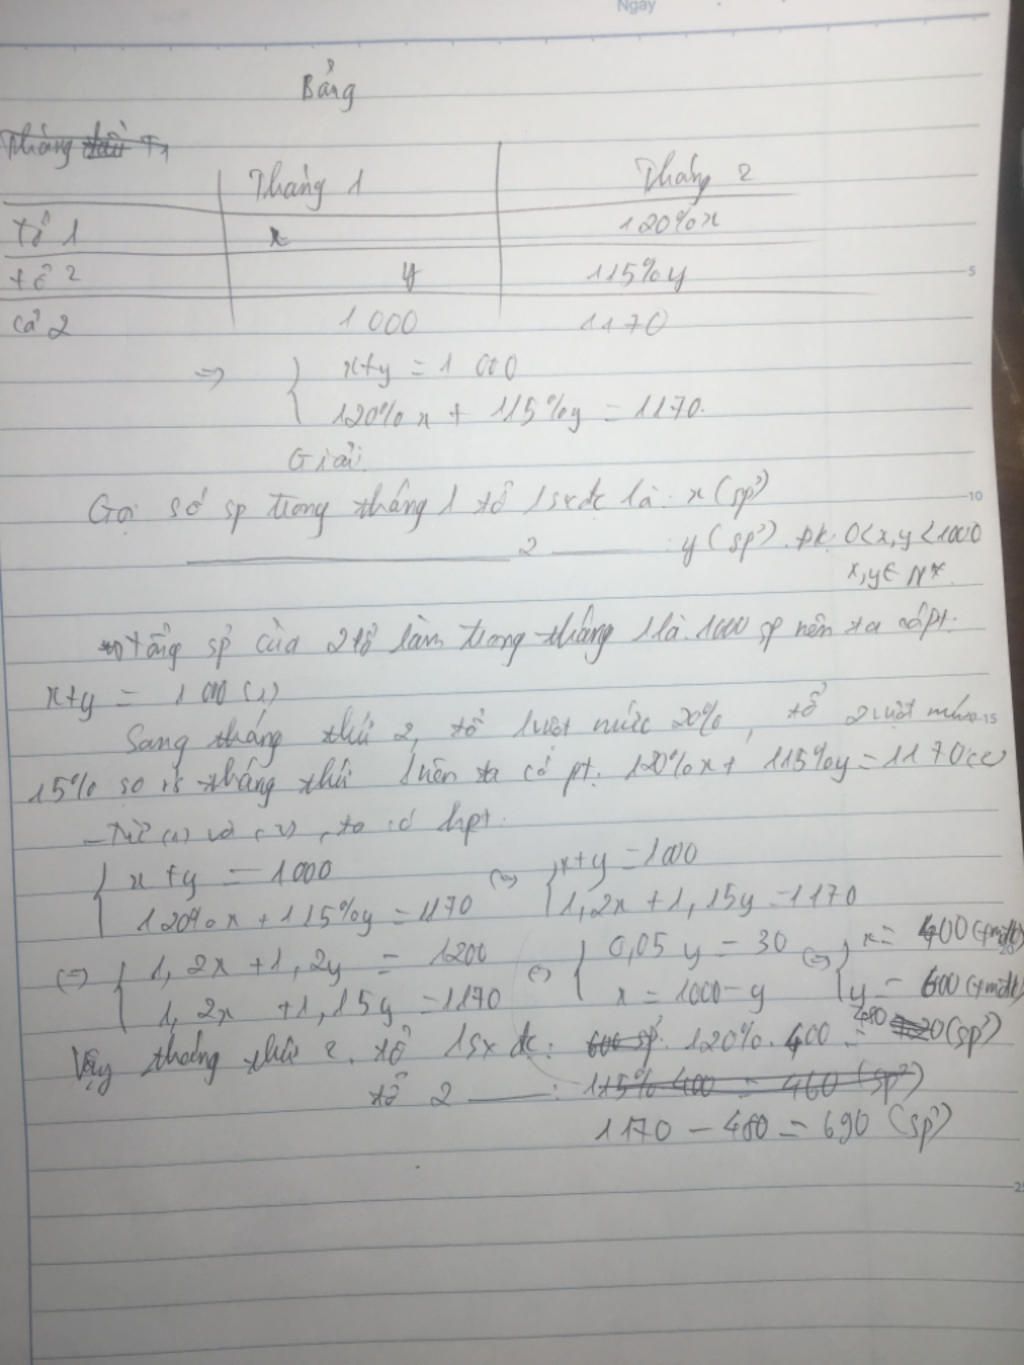 Ngày
Bảng
Tháng T1
Tháng 1 Tháng 2
tổ 1 x 120%x
tổ 2 y 115%y
cả 2 1 000 1170
=> { x+y = 1 000
120%x + 115%y = 1170.
Giải:
Gọi số sp trong tháng 1 tổ 1 sx đc là: x (sp)
2 : y (sp). ĐK: 0<x,y<1000
x,y∈ N*.
tổng sp của 2 tổ làm trong tháng 1 là 1000 sp nên ta có pt:
x+y = 1 000 (1)
Sang tháng thứ 2, tổ 1 vượt mức 20%, tổ 2 vượt mức
15% so vs tháng thứ 1 nên ta có pt: 120%x + 115%y = 1170 (2)
- Từ (1) và (2), ta có hpt:
{ x+y = 1000 (=) { x+y = 1000
120%x + 115%y = 1170 1,2x + 1,15y = 1170
(=) { 1,2x + 1,2y = 1200 (=) { 0,05y = 30 (=) { x = 400 (tmđk)
1,2x + 1,15y = 1170 x = 1000 - y y = 600 (tmđk)
Vậy tháng thứ 2. tổ 1 sx đc: 600 sp. 120%. 400 = 480 (sp)
tổ 2 : 115% 400 = 460 (sp)
1170 - 480 = 690 (sp)